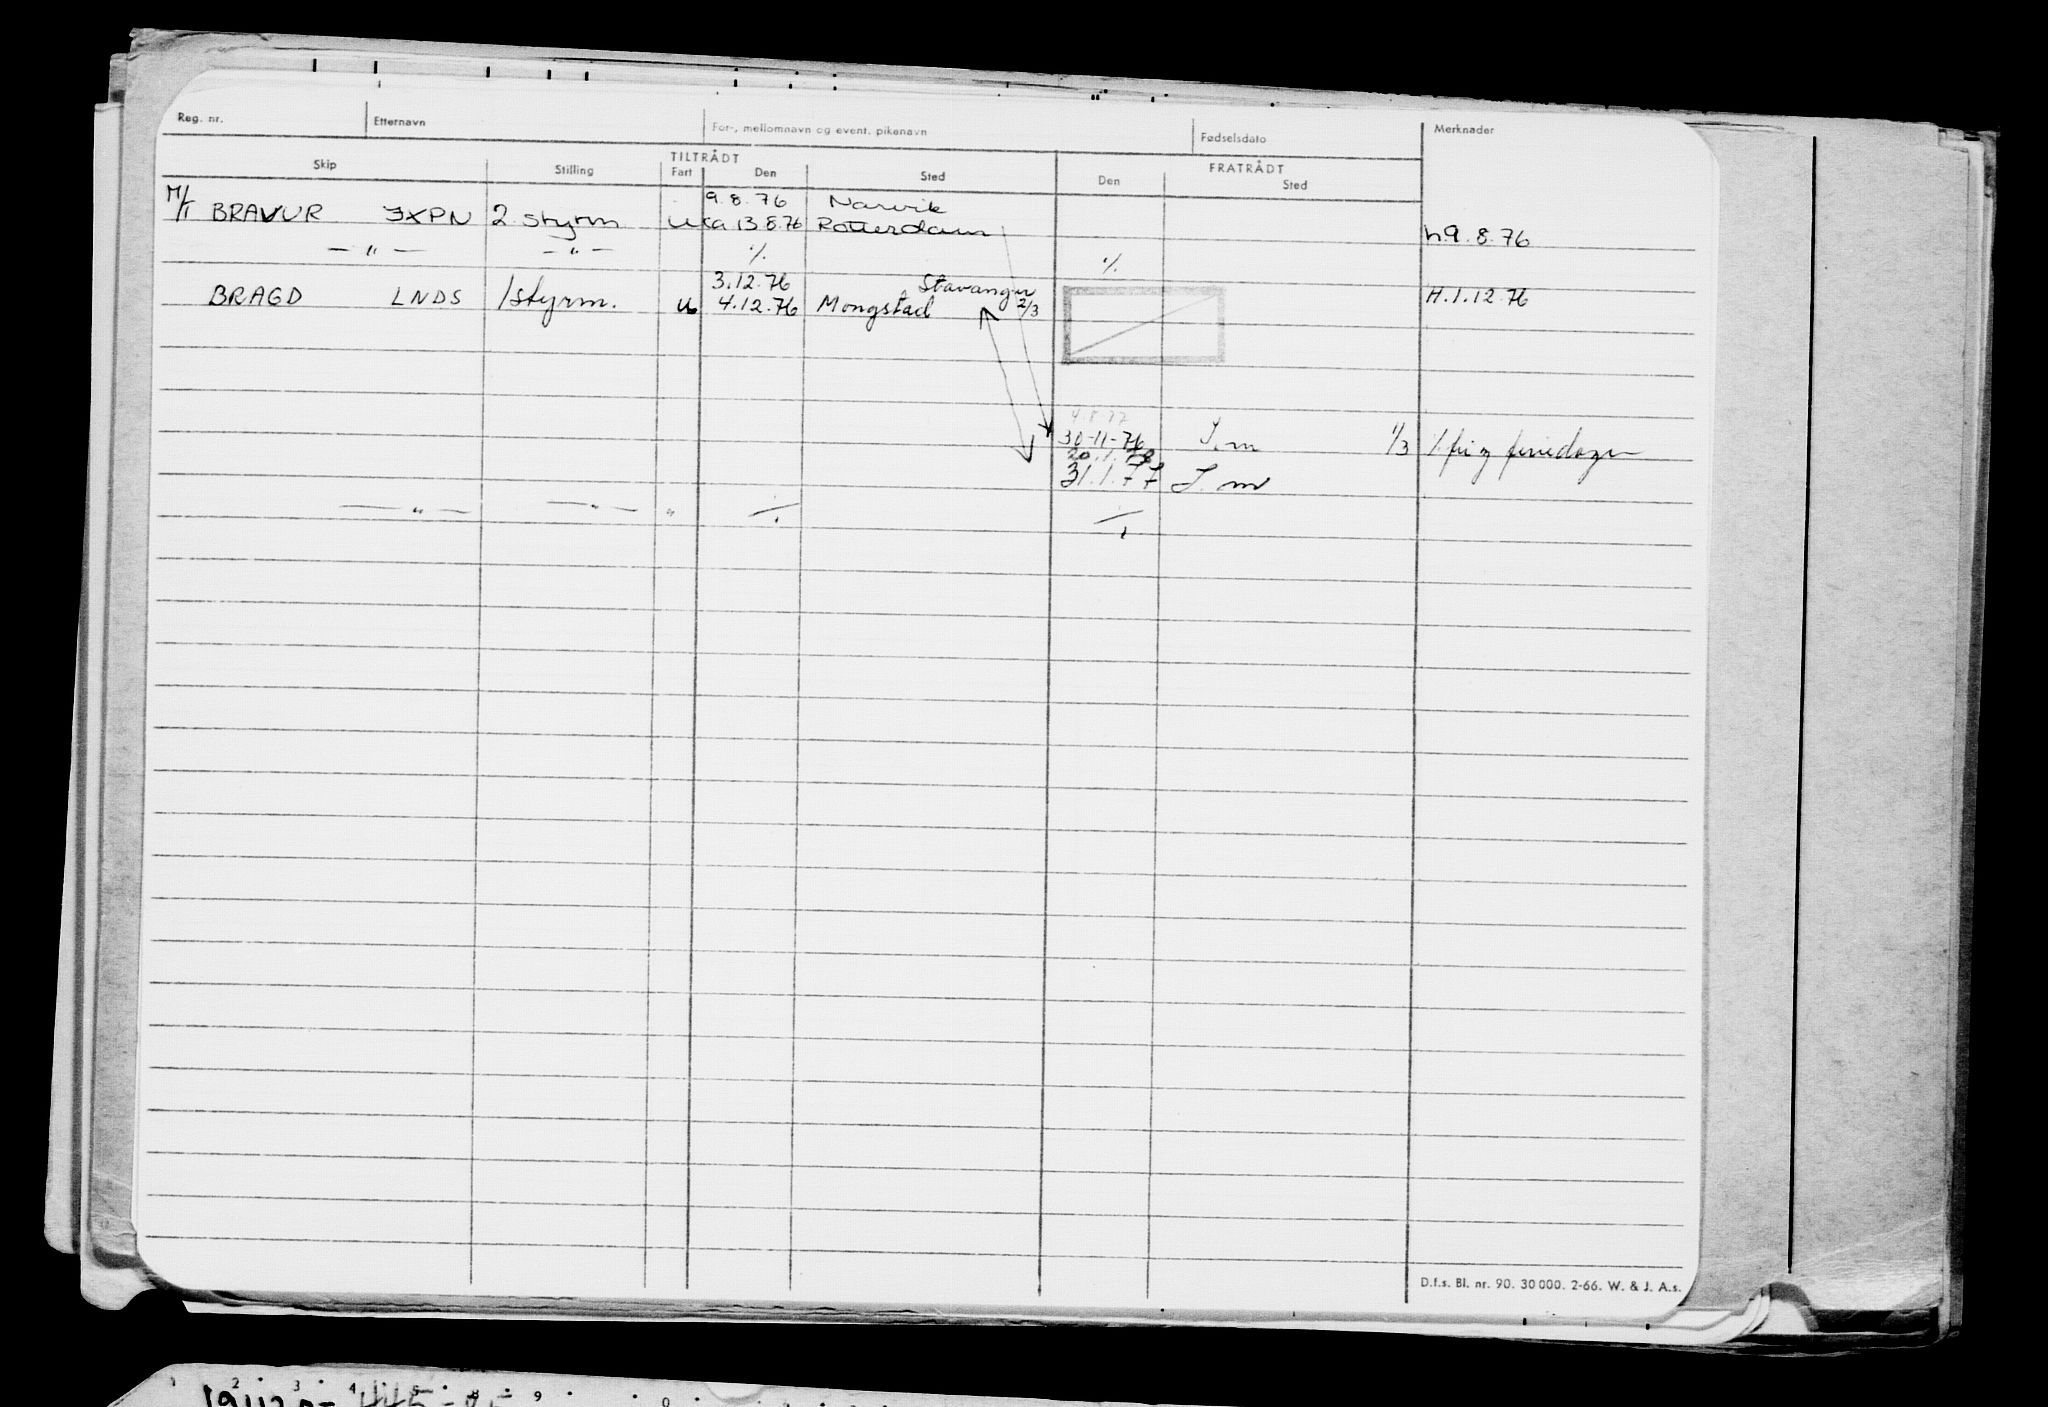 Reg. nr. Etternavn For-, mellomnavn og event. pikenavn Fødselsdato Merknader
TILTRÅDT FRATRÅDT
Skip Stilling Fart Den Sted Den Sted
9.8.76 Narvik
M/T BRAVUR JXPN 2. styrm u ca 13.8.76 Rotterdam h.9.8.76
— " — — " — ./. ./.
3.12.76 Stavanger
BRAGD LNDS 1styrm. u 4.12.76 Mongstad 2/3 H.1.12.76
30-11-76 S.m 1/3
31.1.77 S.m
— " — — " — " ./. ./.
D.f.s. Bl. nr. 90. 30 000. 2-66. W. & J. A.s.
2 3 4 5 8 9